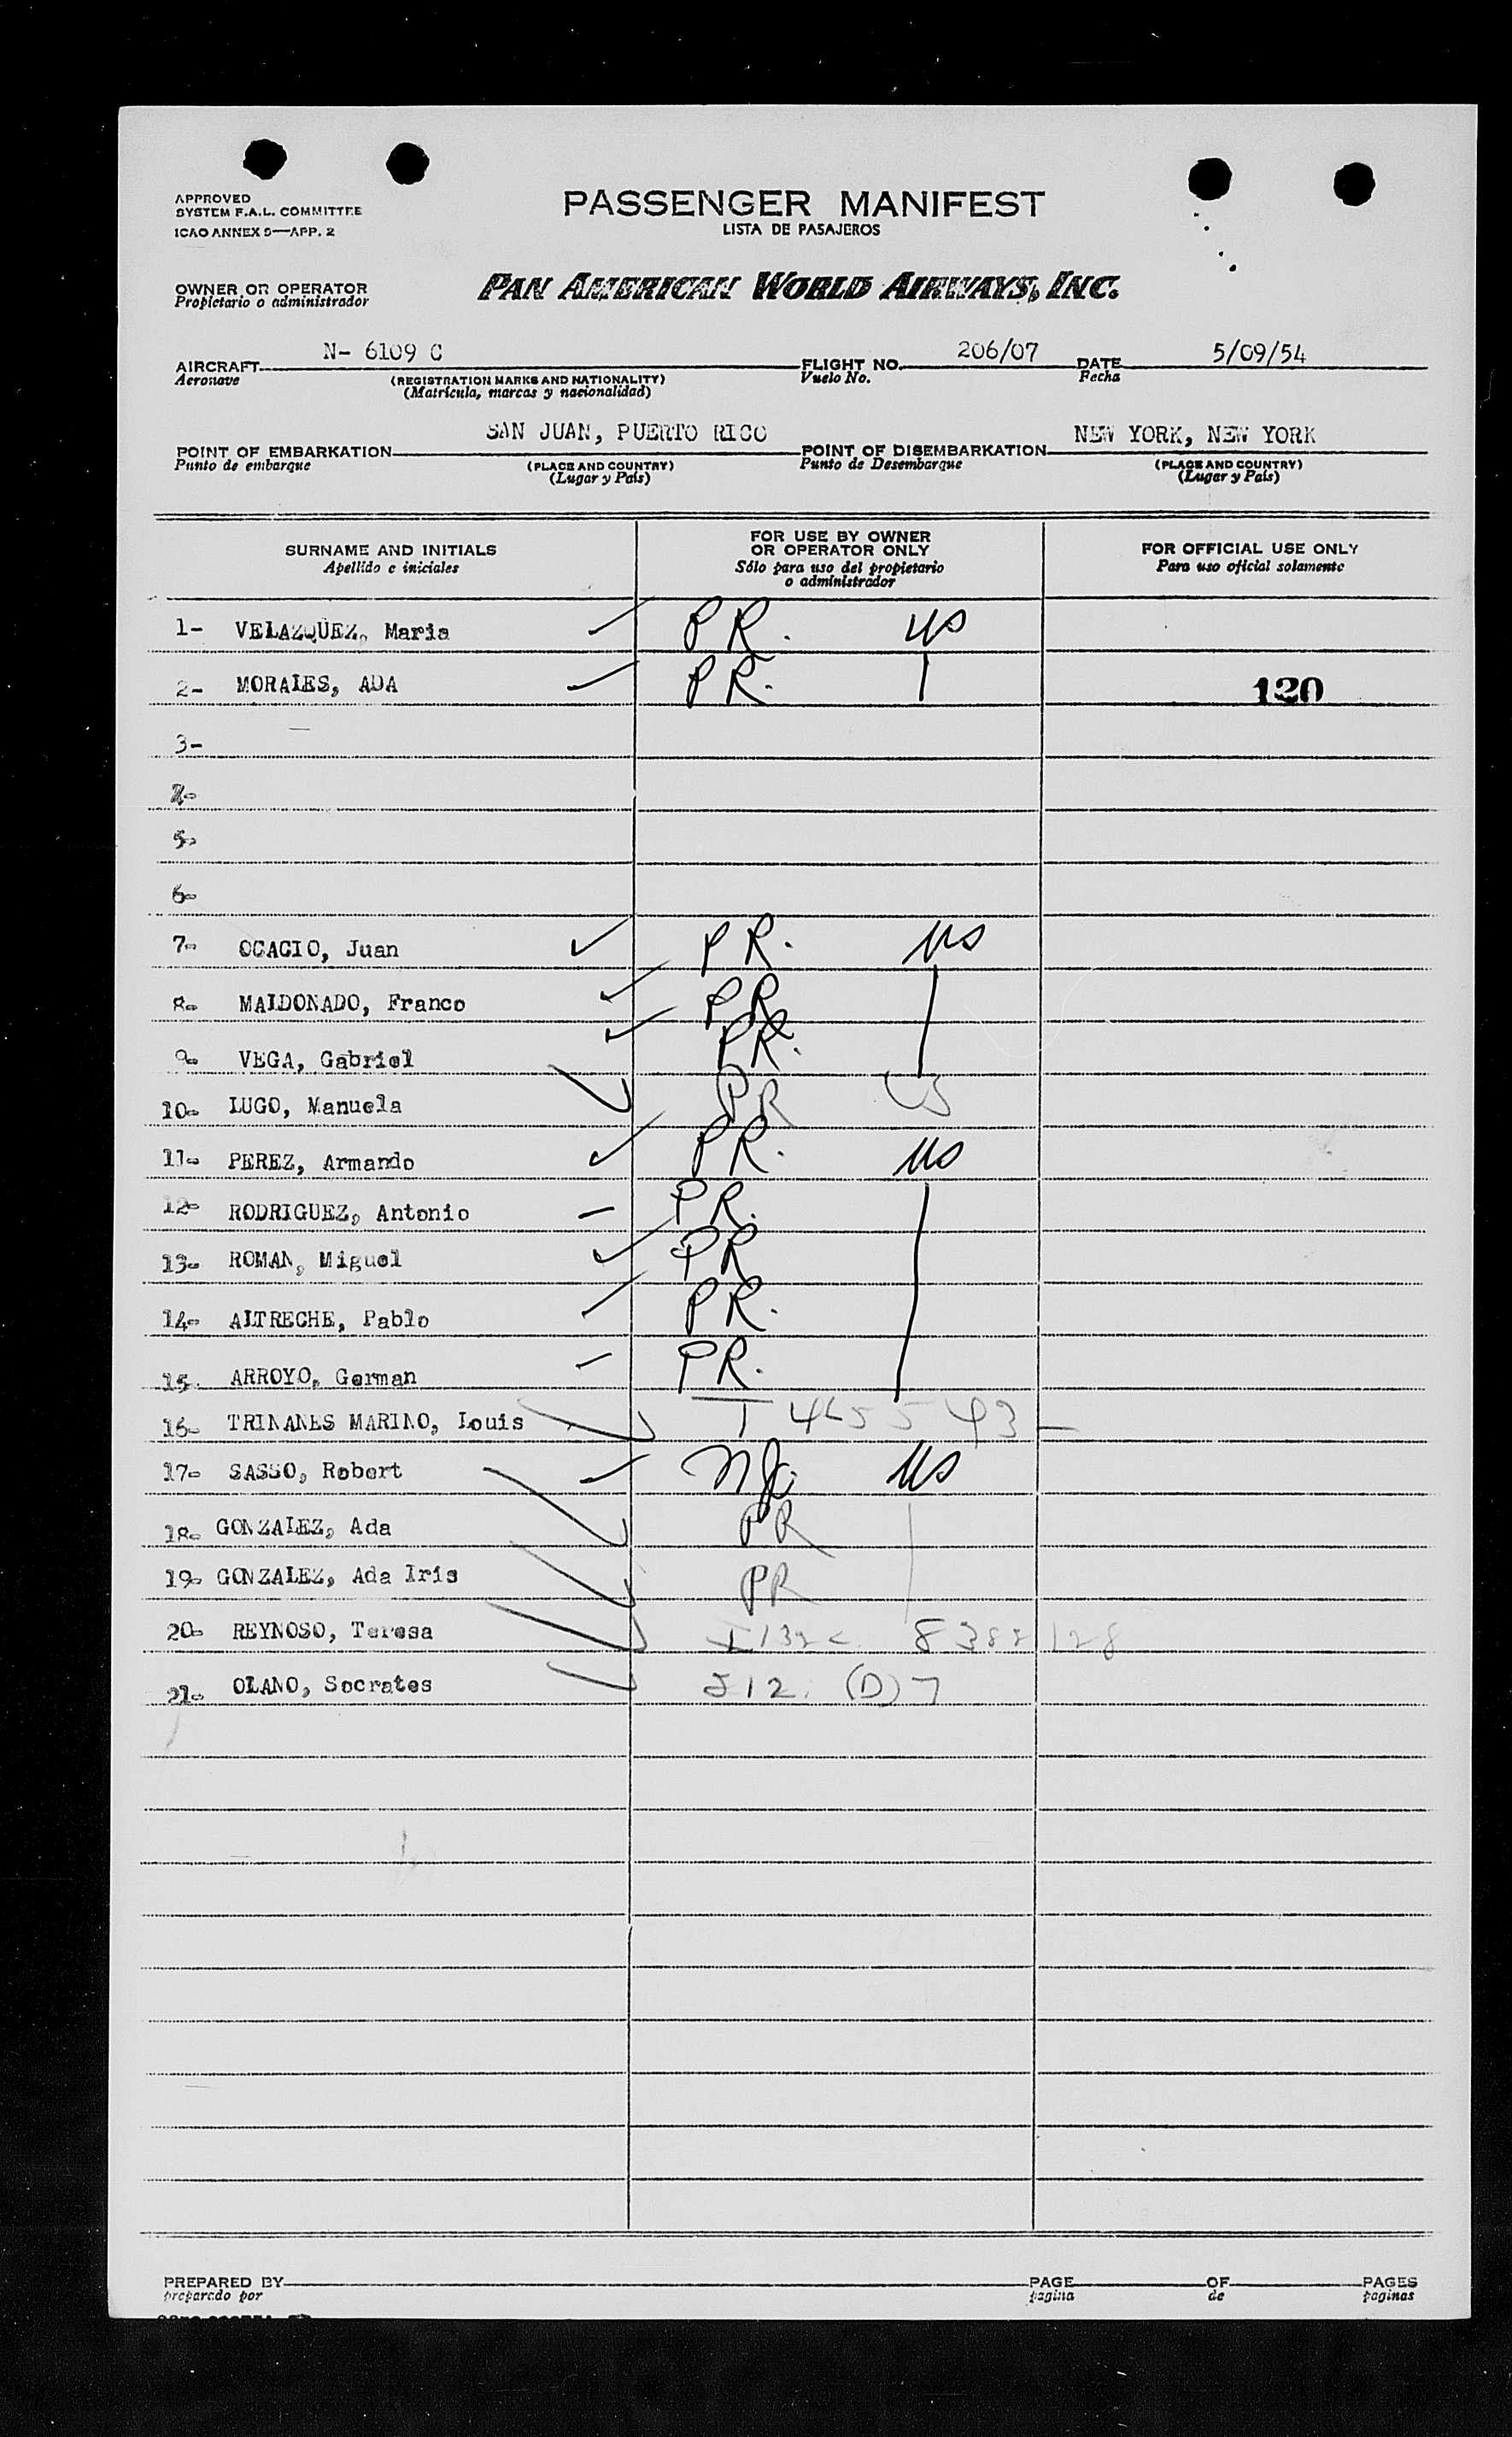 APPROVED
SYSTEM F.A.L. COMMITTEE
ICAO ANNEX 9—APP. 2
PASSENGER MANIFEST
LISTA DE PASAJEROS
OWNER OR OPERATOR
Propietario o administrador
PAN AMERICAN WORLD AIRWAYS, INC.
AIRCRAFT N- 6109 C FLIGHT NO. 206/07 DATE 5/09/54
Aeronave (REGISTRATION MARKS AND NATIONALITY) Vuelo No. Fecha
(Matrícula, marcas y nacionalidad)
POINT OF EMBARKATION SAN JUAN, PUERTO RICO POINT OF DISEMBARKATION NEW YORK, NEW YORK
Punto de embarque (PLACE AND COUNTRY) Punto de Desembarque (PLACE AND COUNTRY)
(Lugar y País) (Lugar y País)
SURNAME AND INITIALS
Apellido e iniciales
FOR USE BY OWNER
OR OPERATOR ONLY
Sólo para uso del propietario
o administrador
FOR OFFICIAL USE ONLY
Para uso oficial solamente
1- VELAZQUEZ, Maria PR. US
2- MORALES, ADA PR. 120
3-
4-
5-
6-
7- OCACIO, Juan PR. US
8- MALDONADO, Franco PR
9- VEGA, Gabriel PR.
10- LUGO, Manuela PR US
11- PEREZ, Armando PR. US
12- RODRIGUEZ, Antonio PR.
13- ROMAN, Miguel PR
14- ALTRECHE, Pablo PR.
15- ARROYO, German PR.
16- TRINANES MARINO, Louis
17- SASSO, Robert US
18- GONZALEZ, Ada PR
19- GONZALEZ, Ada Iris PR
20- REYNOSO, Teresa
21- OLANO, Socrates
PREPARED BY PAGE OF PAGES
preparado por pagina de paginas